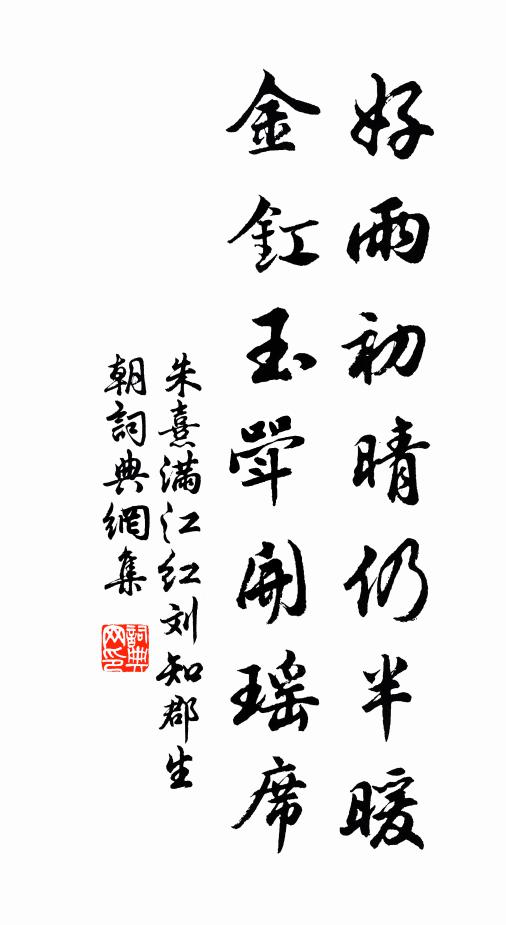 好雨初晴仍半暖
金釭玉斝開瑶席
朱熹满江红刘知郡生
朝詞典網集
詞典网印